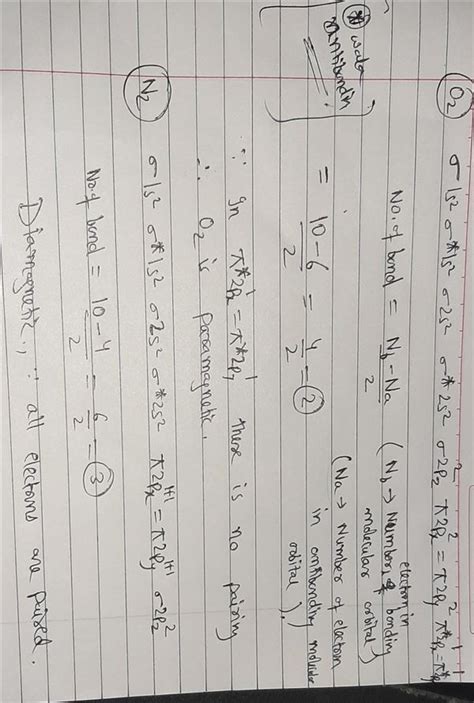 O₂ σ1s² σ*1s² σ2s² σ*2s² σ2pz² π2px² = π2py² π*2px¹ = π*2py¹
No. of bond = Nb - Na / 2 (Nb → Number of electron in bonding molecular orbital)
(Na → Number of electron in antibonding molecular orbital).
* with * antibonding
= 10-6 / 2 = 4/2 = 2
∵ In π*2px¹ = π*2py¹ there is no pairing
∴ O₂ is paramagnetic.
N₂ σ1s² σ*1s² σ2s² σ*2s² π2px¹⁺¹ = π2py¹⁺¹ σ2pz²
No. of bond = 10-4 / 2 = 6/2 = 3
Diamagnetic, ∵ all electrons are paired.